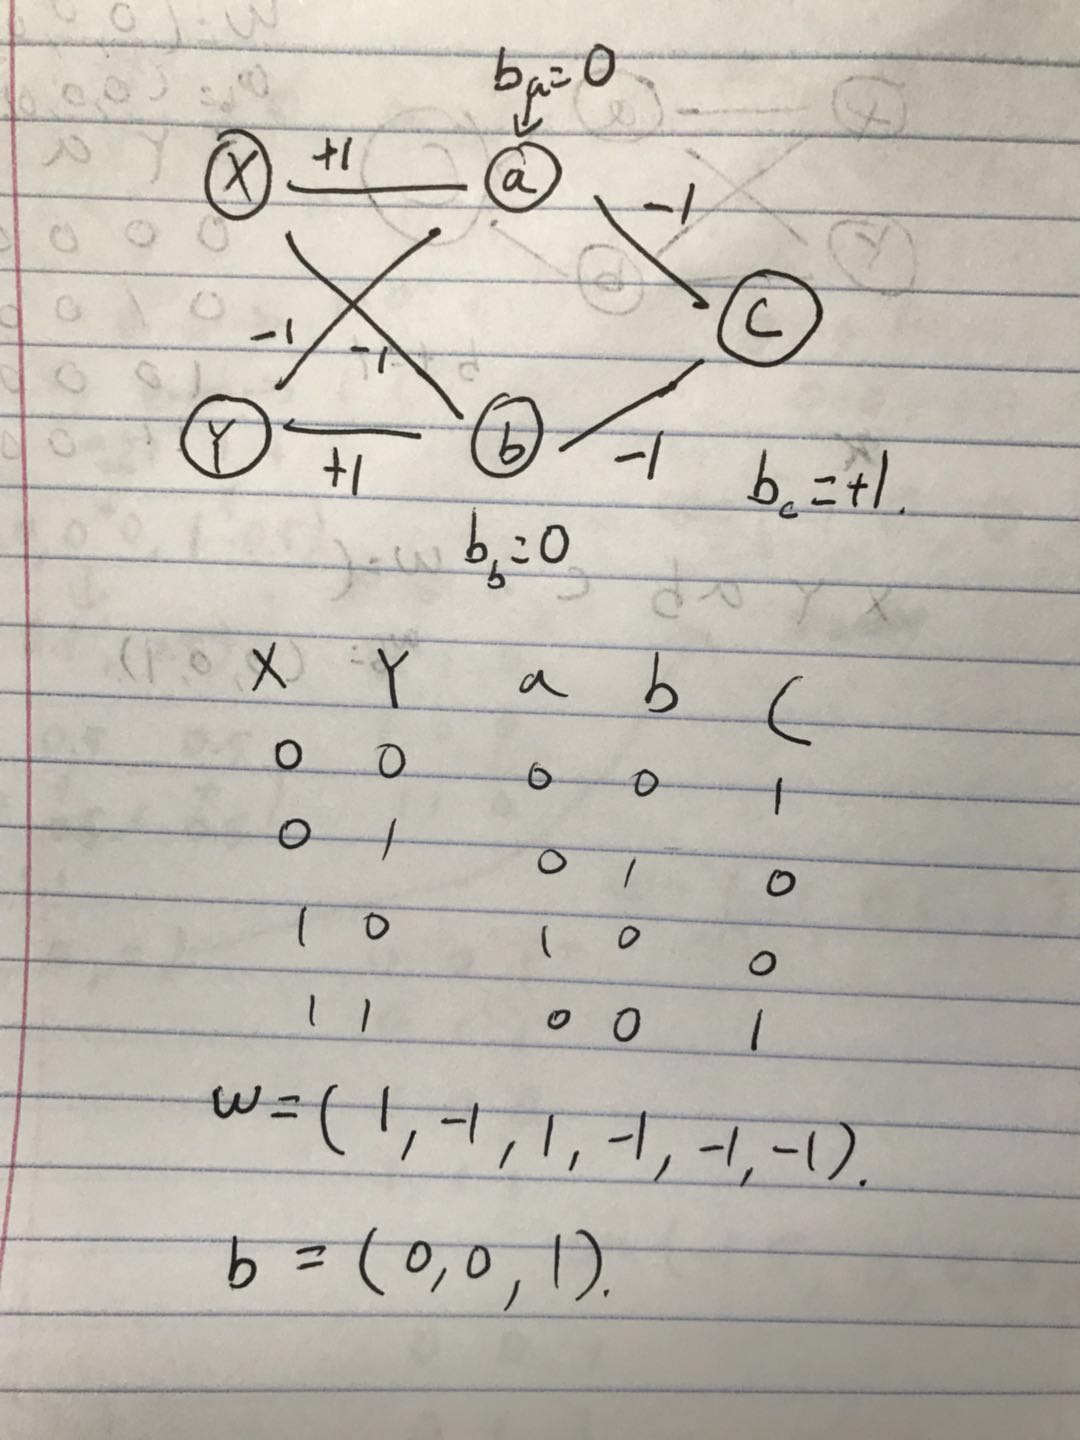 b_a=0
X +1 a
-1
C
-1 -1
Y +1 b -1
b_c=+1.
b_b=0
X Y a b C
0 0 0 0 1
0 1 0 1 0
1 0 1 0 0
1 1 0 0 1
w=(1,-1,1,-1,-1,-1).
b=(0,0,1).